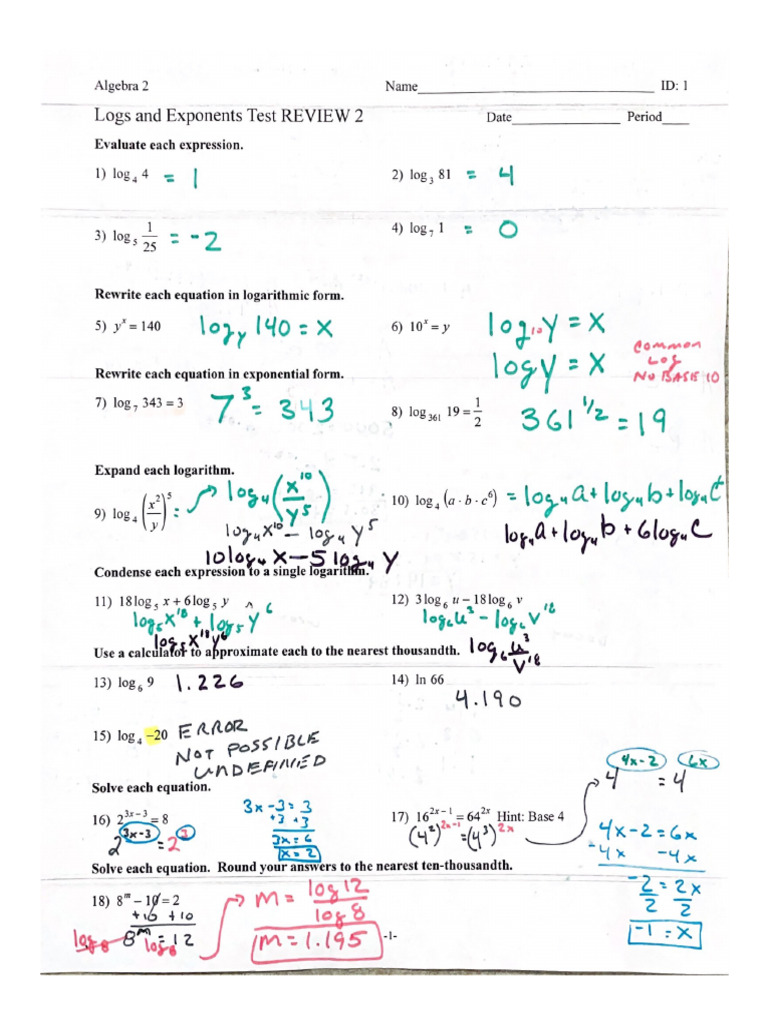 Algebra 2 Name____________________ ID: 1
Logs and Exponents Test REVIEW 2 Date____________ Period____
Evaluate each expression.
1) log₄ 4 = 1 2) log₃ 81 = 4
3) log₅ 1/25 = -2 4) log₇ 1 = 0
Rewrite each equation in logarithmic form.
5) yˣ = 140 log_y 140 = x 6) 10ˣ = y log₁₀ y = x
log y = x
COMMON
LOG
NO BASE 10
Rewrite each equation in exponential form.
7) log₇ 343 = 3 7³ = 343 8) log₃₆₁ 19 = 1/2 361^1/2 = 19
Expand each logarithm.
9) log₄ (x²/y)⁵ : log₄ (x¹⁰/y⁵) 10) log₄ (a · b · c⁶) = log₄ a + log₄ b + log₄ c⁶
log₄ x¹⁰ – log₄ y⁵ log₄ a + log₄ b + 6 log₄ c
10 log₄ x – 5 log₄ y
Condense each expression to a single logarithm.
11) 18 log₅ x + 6 log₅ y 12) 3 log₆ u – 18 log₆ v
log₅ x¹⁸ + log₅ y⁶ log₆ u³ – log₆ v¹⁸
log₅ x¹⁸y⁶ log₆ u³/v¹⁸
Use a calculator to approximate each to the nearest thousandth.
13) log₆ 9 1.226 14) ln 66 4.190
15) log₄ –20 ERROR
NOT POSSIBLE
UNDEFINED
Solve each equation.
16) 2^(3x – 3) = 8 17) 16^(2x – 1) = 64^(2x) Hint: Base 4
2^(3x-3) = 2^3 (4²)^(2x-1) = (4³)^(2x)
3x - 3 = 3 4^(4x-2) = 4^(6x)
+3 +3 4x - 2 = 6x
3x = 6 -4x -4x
x = 2 -2 = 2x
2 2
-1 = x
Solve each equation. Round your answers to the nearest ten-thousandth.
18) 8ᵐ – 10 = 2 m = log 12/log 8
+10 +10
log₈ 8ᵐ = 12 log₈ m = 1.195
-1-